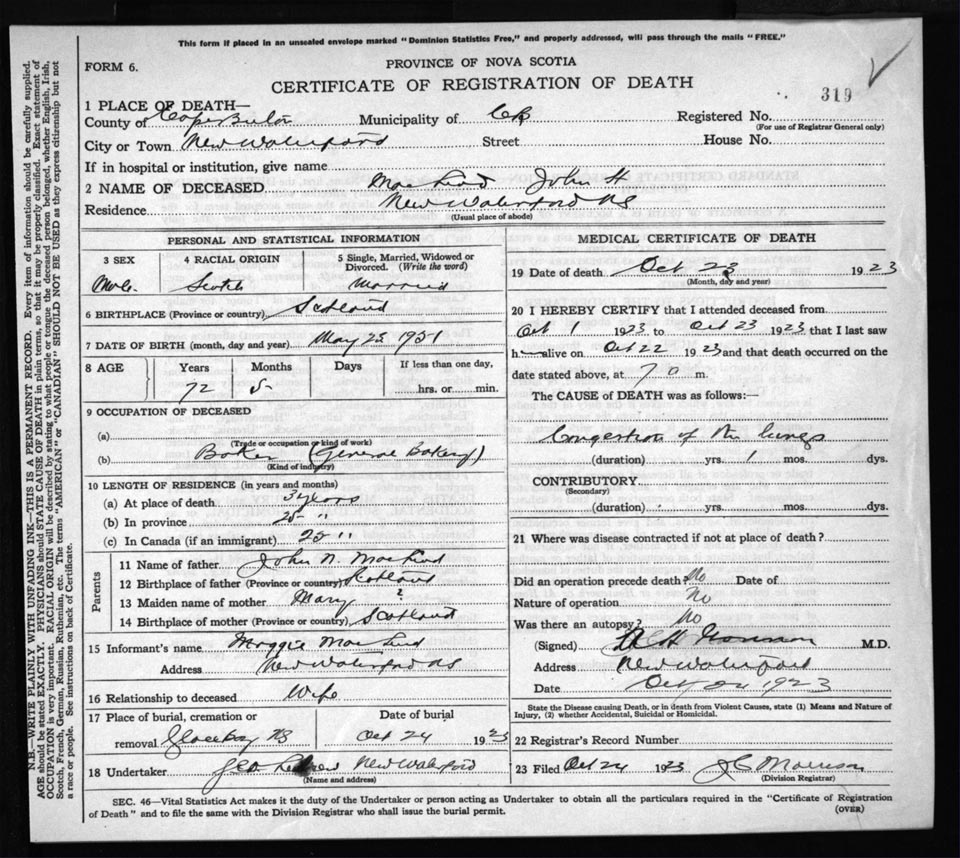 This form if placed in an unsealed envelope marked "Dominion Statistics Free," and properly addressed, will pass through the mails "FREE."
FORM 6.
PROVINCE OF NOVA SCOTIA
CERTIFICATE OF REGISTRATION OF DEATH
319
1 PLACE OF DEATH—
County of Cape Breton Municipality of CB Registered No.
(For use of Registrar General only)
City or Town New Waterford Street House No.
If in hospital or institution, give name
2 NAME OF DECEASED John H
Residence New Waterford NS
(Usual place of abode)
PERSONAL AND STATISTICAL INFORMATION
3 SEX 4 RACIAL ORIGIN 5 Single, Married, Widowed or Divorced. (Write the word)
Male Scotch Married
6 BIRTHPLACE (Province or country) Scotland
7 DATE OF BIRTH (month, day and year) May 25 1951
8 AGE Years Months Days If less than one day,
72 5 hrs. or min.
9 OCCUPATION OF DECEASED
(a)
(Trade or occupation or kind of work)
(b) Baker (General Bakery)
(Kind of industry)
10 LENGTH OF RESIDENCE (in years and months)
(a) At place of death 3 years
(b) In province 25 "
(c) In Canada (if an immigrant) 25 "
Parents
11 Name of father John N.
12 Birthplace of father (Province or country) Scotland
13 Maiden name of mother Mary ?
14 Birthplace of mother (Province or country) Scotland
15 Informant's name Maggie
Address New Waterford NS
16 Relationship to deceased Wife
17 Place of burial, cremation or removal Glace Bay NS
Date of burial
Oct 24 1923
18 Undertaker Geo New Waterford
(Name and address)
MEDICAL CERTIFICATE OF DEATH
19 Date of death Oct 23 1923
(Month, day and year)
20 I HEREBY CERTIFY that I attended deceased from
Oct 1 1923 to Oct 23 1923 that I last saw
h alive on Oct 22 1923 and that death occurred on the
date stated above, at 7 a m.
The CAUSE of DEATH was as follows:—
Congestion of the lungs
(duration) yrs. 1 mos. dys.
CONTRIBUTORY
(Secondary)
(duration) yrs. mos. dys.
21 Where was disease contracted if not at place of death?
Did an operation precede death? No Date of
Nature of operation No
Was there an autopsy? No
(Signed) M.D.
Address New Waterford
Date Oct 24 1923
State the Disease causing Death, or in death from Violent Causes, state (1) Means and Nature of Injury, (2) whether Accidental, Suicidal or Homicidal.
22 Registrar's Record Number
23 Filed Oct 24 1923 Morrison
(Division Registrar)
SEC. 46—Vital Statistics Act makes it the duty of the Undertaker or person acting as Undertaker to obtain all the particulars required in the "Certificate of Registration
of Death" and to file the same with the Division Registrar who shall issue the burial permit.
(OVER)
N.B.—WRITE PLAINLY WITH UNFADING INK—THIS IS A PERMANENT RECORD. Every item of information should be carefully supplied.
AGE should be stated EXACTLY. PHYSICIANS should STATE CAUSE OF DEATH in plain terms, so that it may be properly classified. Exact statement of
OCCUPATION is very important. RACIAL ORIGIN will be described by stating to what people or tongue the deceased person belonged, whether English, Irish,
Scotch, French, German, Russian, Ruthenian, etc. The terms "AMERICAN" or "CANADIAN" SHOULD NOT BE USED as they express citizenship but not
a race or people. See instructions on back of Certificate.